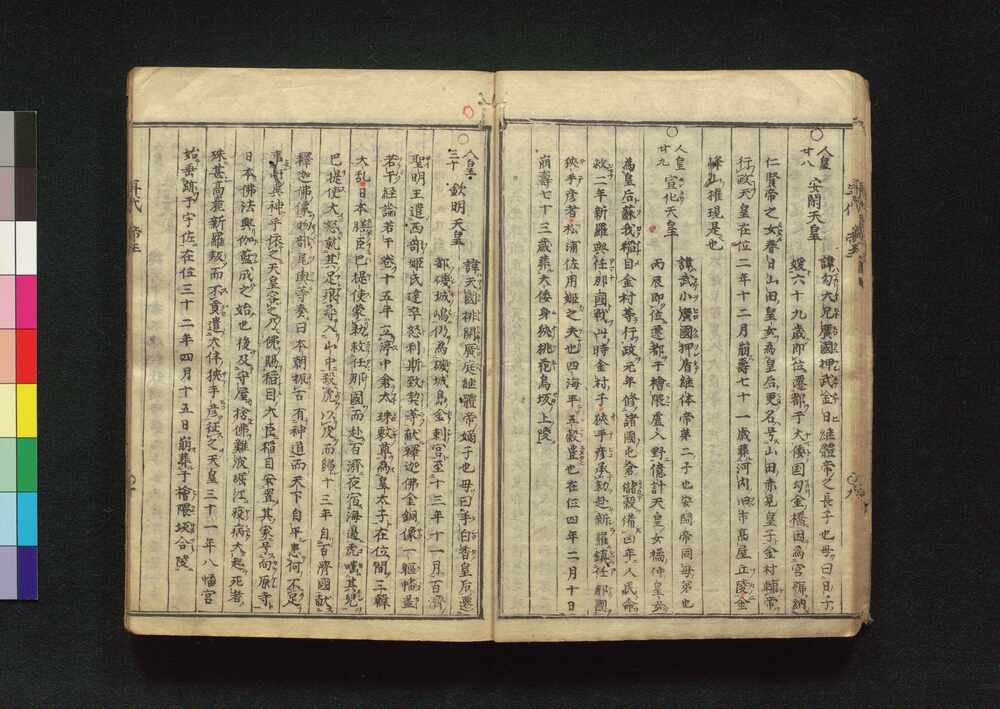 人皇廿八 安閑天皇
諱勾大兄廣國押武金日継體帝之長子也母曰目子
媛六十九歳即位遷都于大倭国勾金橋因為宮号納
仁賢帝之女春日山田皇女為皇后更名号山田赤見皇子金村輔帝
行政天皇在位二年十二月崩壽七十一歳葬河内旧市高屋丘陵金
峰山権現是也
人皇廿九 宣化天皇
諱武小廣國押盾継体帝第二子也安閑帝同母弟也
丙辰即位遷都于檜隈盧入野億計天皇女橘仲皇女
為皇后蘇我稲目金村等行政元年修諸國屯倉儲穀備凶年人民命
救二年新羅與任那國戦此時金村子狭手彦承勅赴新羅鎮任那國
狭手彦者松浦佐用姫之夫也四海平五穀豊也在位四年二月十日
崩壽七十三歳葬大倭身狭桃花鳥坂上陵
人皇三十 欽明天皇
諱天國排開廣庭継體帝嫡子也母曰手白香皇后遷
都磯城嶋仍為磯城島金刺宮至十三年十一月百濟
聖明王遣西部姫氏達率怒利斯致契等献釋迦佛金銅像一軀幡蓋
若干経論若干巻十五年立渟中倉太珠敷尊為皇太子在位間三韓
大乱日本膳臣巴提使蒙勅救任那國而赴百濟夜宿海邊虎噬其児
巴提使大怒就其足痕尋入山中殺虎以皮而歸十三年自百濟國献
釋迦佛像物部尾輿等奏日本朝振古有神道而天下自平患何不足
事興異神乎拯之天皇容之乃佛賜稲目大臣稲目安置其家号向原寺
日本佛法興伽藍成之始也後及守屋捨佛難波堀江疫病大起死者
殊甚高麗新羅叛而不貢遣大伴狭手彦征之天皇三十一年八幡宮
始垂跡于宇佐在位三十二年四月十五日崩葬于檜隈坂合陵